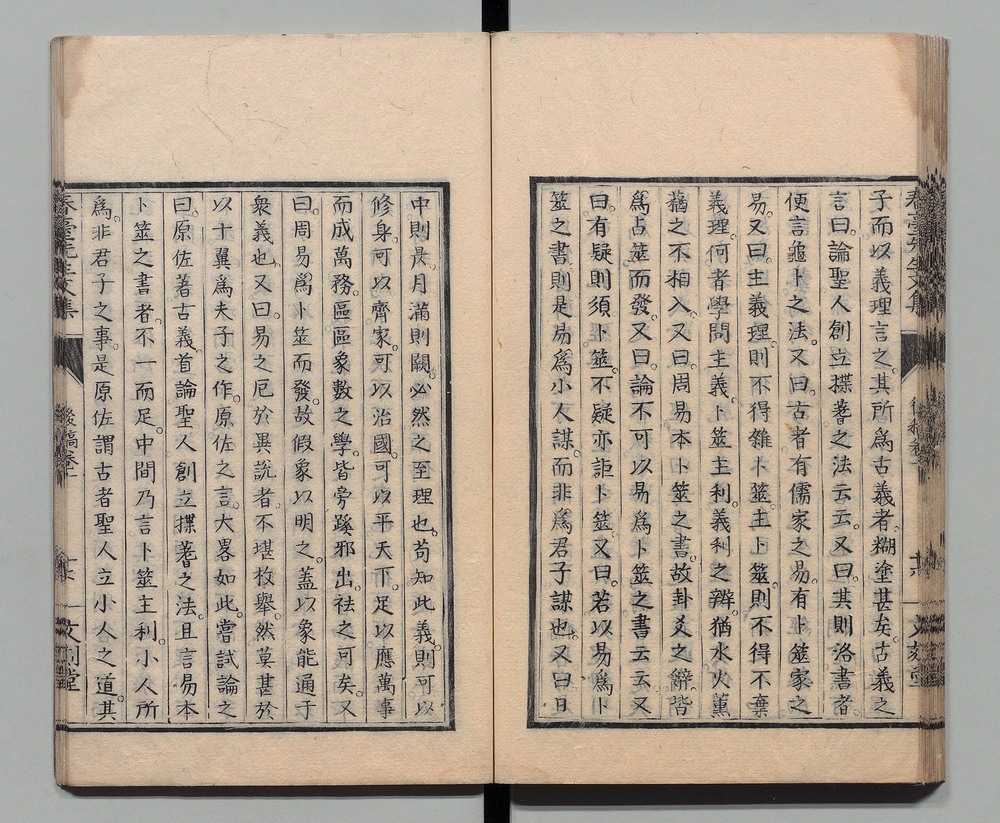 子而以義理言之其所爲古義者糊塗甚矣古義之
言曰論聖人創立揲蓍之法云云又曰其則洛書者
便言龜卜之法又曰古者有儒家之易有卜筮家之
易又曰主義理則不得雜卜筮主卜筮則不得不棄
義理何者學問主義卜筮主利義利之辨猶水火薰
蕕之不相入又曰周易本卜筮之書故卦爻之辭皆
爲占筮而發又曰論不可以易爲卜筮之書云云又
曰有疑則須卜筮不疑亦詎卜筮又曰若以易爲卜
筮之書則是易爲小人謀而非爲君子謀也又曰日
中則昃月滿則闕必然之至理也苟知此義則可以
修身可以齊家可以治國可以平天下足以應萬事
而成萬務區區象數之學皆旁蹊邪出祛之可矣又
曰周易爲卜筮而發故假象以明之蓋以象能通于
衆義也又曰易之厄於異說者不堪枚舉然莫甚於
以十翼爲夫子之作原佐之言大畧如此嘗試論之
曰原佐著古義首論聖人創立揲蓍之法且言易本
卜筮之書者不一而足中間乃言卜筮主利小人所
爲非君子之事是原佐謂古者聖人立小人之道其
春臺先生文集 後稿卷十